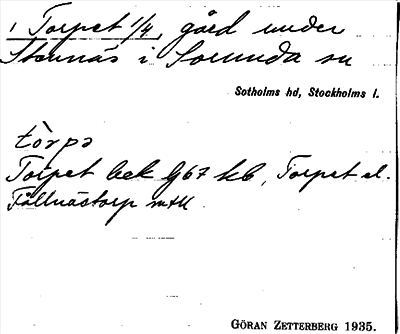 1 Torpet 1/4, gård under
Stavnäs i Sorunda sn
Sotholms hd, Stockholms l.
tòrpə
Torpet bek G67 kb, Torpet el.
Fållnästorp mtll
GÖRAN ZETTERBERG 1935.